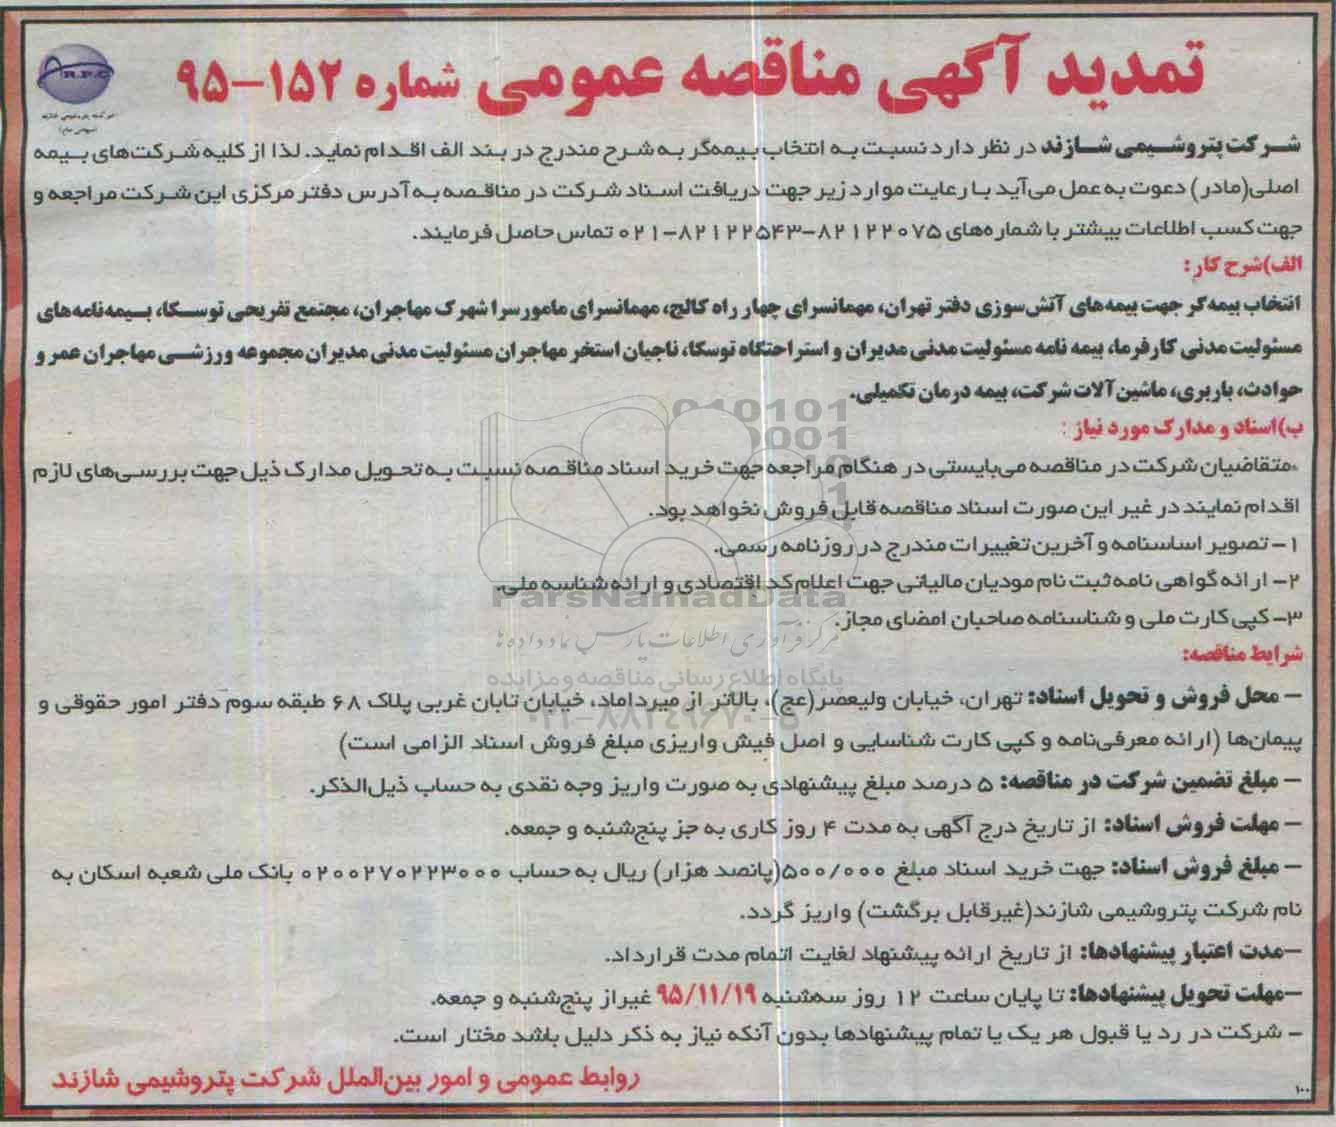 تمدید آگهی مناقصه عمومی شماره ۱۵۲-۹۵
A.R.P.C
شرکت پتروشیمی شازند
(سهامی عام)
شرکت پتروشیمی شازند در نظر دارد نسبت به انتخاب بیمه‌گر به شرح مندرج در بند الف اقدام نماید. لذا از کلیه شرکت‌های بیمه
اصلی(مادر) دعوت به عمل می‌آید با رعایت موارد زیر جهت دریافت اسناد شرکت در مناقصه به آدرس دفتر مرکزی این شرکت مراجعه و
جهت کسب اطلاعات بیشتر با شماره‌های ۸۲۱۲۲۰۷۵-۸۲۱۲۲۵۴۳-۰۲۱ تماس حاصل فرمایند.
الف)شرح کار:
انتخاب بیمه‌گر جهت بیمه‌های آتش‌سوزی دفتر تهران، مهمانسرای چهار راه کالج، مهمانسرای مامورسرا شهرک مهاجران، مجتمع تفریحی توسکا، بیمه‌نامه‌های
مسئولیت مدنی کارفرما، بیمه نامه مسئولیت مدنی مدیران و استراحتگاه توسکا، ناجیان استخر مهاجران مسئولیت مدنی مدیران مجموعه ورزشی مهاجران عمر و
حوادث، باربری، ماشین‌آلات شرکت، بیمه درمان تکمیلی.
ب)اسناد و مدارک مورد نیاز :
.متقاضیان شرکت در مناقصه می‌بایستی در هنگام مراجعه جهت خرید اسناد مناقصه نسبت به تحویل مدارک ذیل جهت بررسی‌های لازم
اقدام نمایند در غیر این صورت اسناد مناقصه قابل فروش نخواهد بود.
۱- تصویر اساسنامه و آخرین تغییرات مندرج در روزنامه رسمی.
۲- ارائه گواهی نامه ثبت نام مودیان مالیاتی جهت اعلام کد اقتصادی و ارائه شناسه ملی.
ParsNamadData
۳- کپی کارت ملی و شناسنامه صاحبان امضای مجاز.
مرکز فرآوری اطلاعات پارس نماد داده‌ها
شرایط مناقصه:
پایگاه اطلاع رسانی مناقصه و مزایده
- محل فروش و تحویل اسناد: تهران، خیابان ولیعصر(عج)، بالاتر از میرداماد، خیابان تابان غربی پلاک ۶۸ طبقه سوم دفتر امور حقوقی و
۰۲۱-۸۸۳۴۹۶۷۰-۵
پیمان‌ها (ارائه معرفی‌نامه و کپی کارت شناسایی و اصل فیش واریزی مبلغ فروش اسناد الزامی است)
- مبلغ تضمین شرکت در مناقصه: ۵ درصد مبلغ پیشنهادی به صورت واریز وجه نقدی به حساب ذیل‌الذکر.
- مهلت فروش اسناد: از تاریخ درج آگهی به مدت ۴ روز کاری به جز پنج‌شنبه و جمعه.
- مبلغ فروش اسناد: جهت خرید اسناد مبلغ ۵۰۰/۰۰۰(پانصد هزار) ریال به حساب ۰۲۰۰۲۷۰۲۲۳۰۰۰ بانک ملی شعبه اسکان به
نام شرکت پتروشیمی شازند(غیرقابل برگشت) واریز گردد.
-مدت اعتبار پیشنهادها: از تاریخ ارائه پیشنهاد لغایت اتمام مدت قرارداد.
-مهلت تحویل پیشنهادها: تا پایان ساعت ۱۲ روز سه‌شنبه ۹۵/۱۱/۱۹ غیراز پنج‌شنبه و جمعه.
- شرکت در رد یا قبول هر یک یا تمام پیشنهادها بدون آنکه نیاز به ذکر دلیل باشد مختار است.
روابط عمومی و امور بین‌الملل شرکت پتروشیمی شازند
۱۰۰